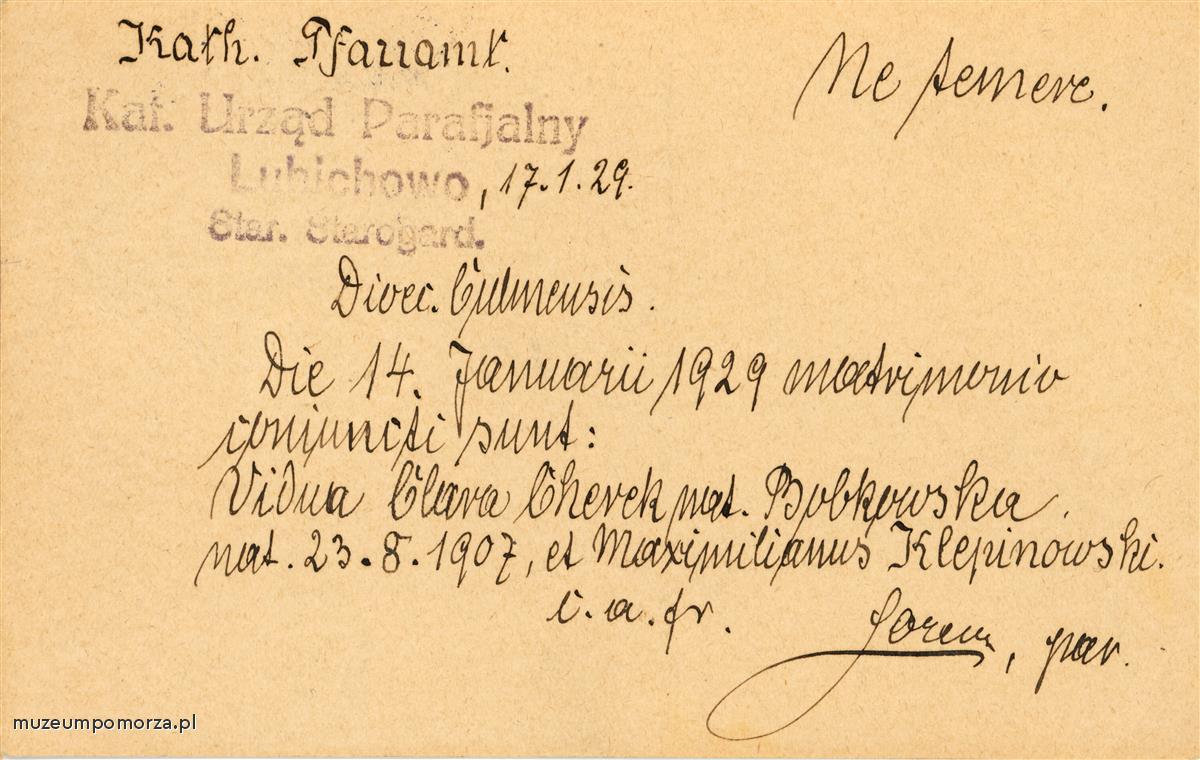 Kath. Pfarramt.
Ne temere.
Kat. Urząd Parafjalny
Lubichowo, 17.1.29.
Star. Starogard.
Dioec. Culmensis.
Die 14. Januarii 1929 matrimonio
conjuncti sunt:
Vidua Clara Cherek nat. Bobkowska.
nat. 23.8.1907, et Maximilianus Klepinowski.
c. a. fr.
, par.
muzeumpomorza.pl